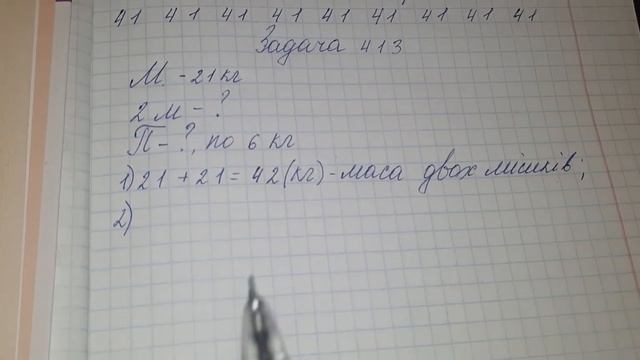 41 41 41 41 41 41 41 41 41
Задача 413
М. - 21 кг
2 м - ?
П - ?, по 6 кг
1) 21 + 21 = 42 (кг) - маса двох мішків;
2)